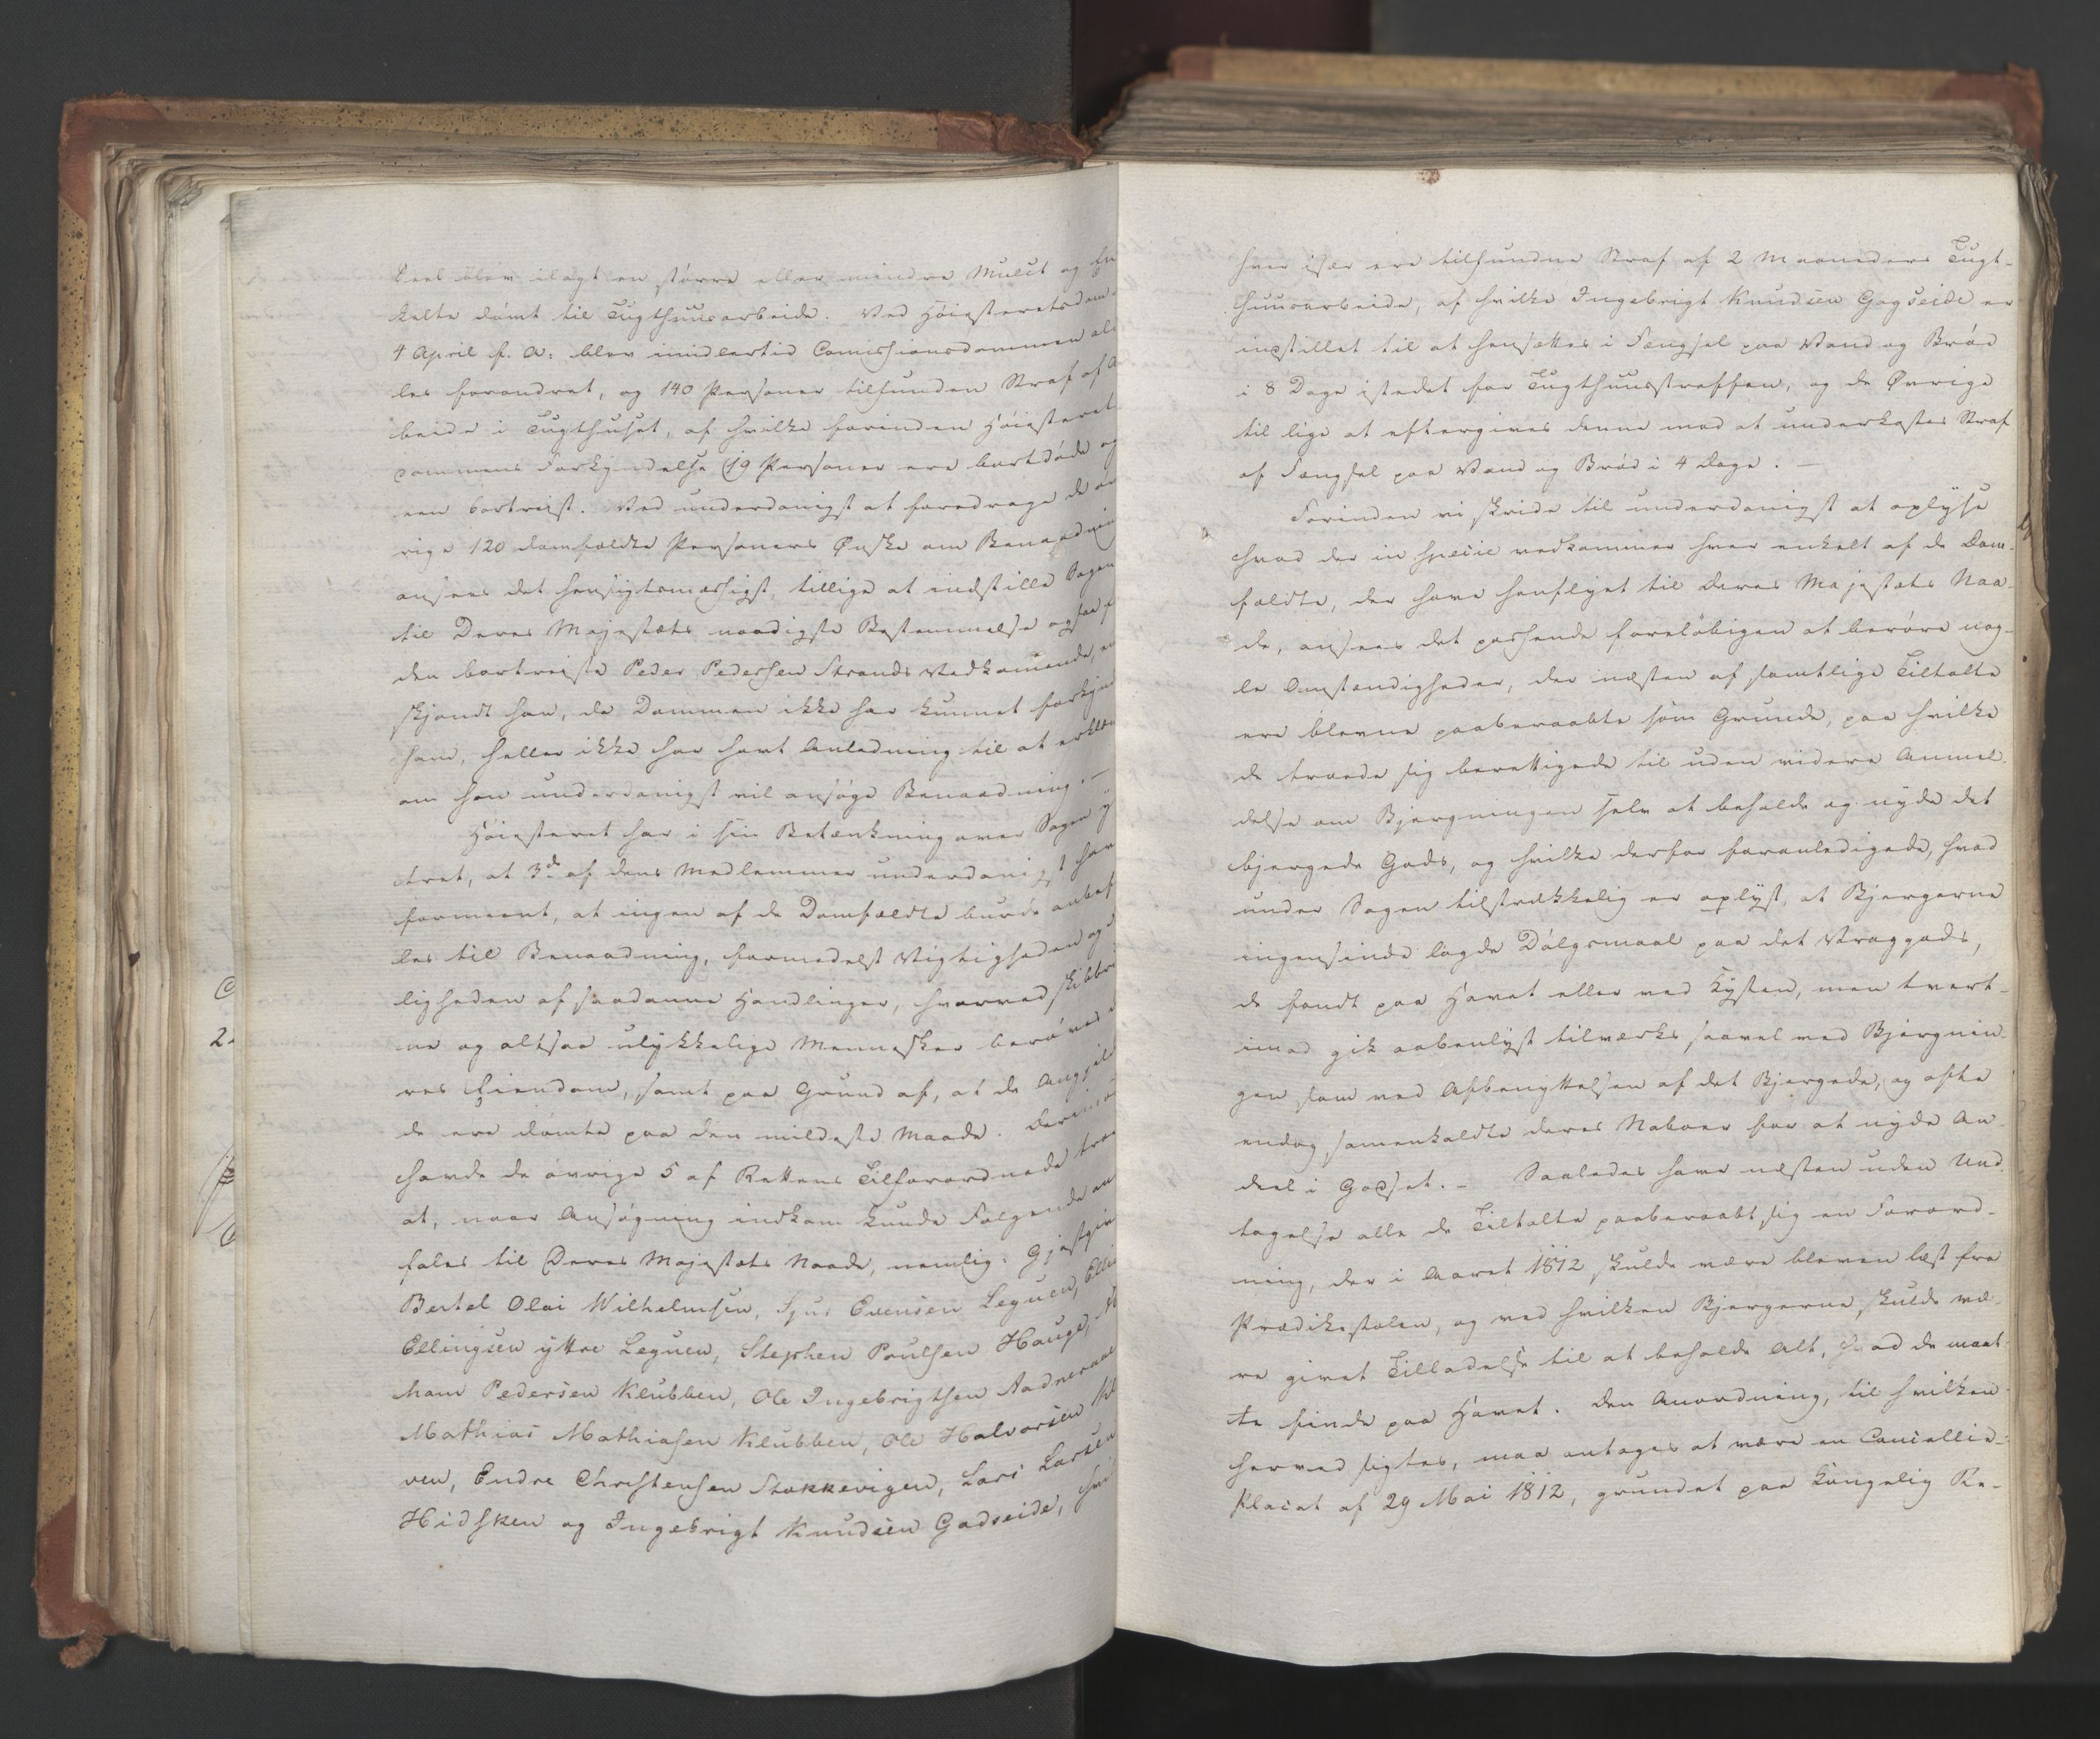 Deel blev ilagt en större eller mindre Mulct og En
kelte dömt til Tugthuusarbeide. Ved Höiesteretsdom
4 April f. A: blev imidlertid Comissionsdommen al
les forandret, og 140 Personer tilfunden Straf af A
beide i Tugthuset, af hvilke forinden Höiesteret
dommens Forkyndelse 19 Personer ere bortdöde og
een bortreist. Ved underdanigst at foredrage de öv
rige 120 domfældte Personers Ønske om Benaadnin
ansees det hensigtsmæssigst, tillige at indstille Sagen
til Deres Majestæts naadigste Bestemmelse ogsaa f
den bortreiste Peder Pedersen Strands Vedkomende,
skjöndt han, da Dommen ikke har kunnet forkynd
ham, heller ikke har havt Anledning til at erklær
om han underdanigst vil ansöge Benaadning. —
Höiesteret har i sin Betænkning over Sagen y
tret, at 3de af dens Medlemmer underdanigst hav
formeent, at ingen af de Domfældte burde anbef
les til Benaadning, formedelst Vigtigheden og
ligheden af saadanne Handlinger, hvorved skibbr
ne og altsaa ulykkelige Mennesker beröves
res Eiendom, samt paa Grund af, at de Angjeld
de ere dömte paa den mildeste Maade. Derimo
havde de övrige 5 af Rettens Tilforordnede troe
at, naar Ansögning indkom kunde Fölgende an
fales til Deres Majestæts Naade, nemlig: Gjæstgiv
Bertel Olai Wilhelmsen, Sjur Evensen Legnen, Elli
Ellingsen yttre Legnen, Stephen Poulsen Hauge,
ham Pedersen Klubben, Ole Ingebrigtsen Aadneraae
Mathias Mathiasen Klubben, Ole Halvorsen Kl
ven, Endre Christensen Stokkevigen, Lars Larsen
Hidsken og Ingebrigt Knudsen Gadseide, hvi
hver især ere tilfundne Straf af 2 Maaneders Tugt-
huusarbeide, af hvilke Ingebrigt Knudsen Gagseide er
indstillet til at hensættes i Fængsel paa Vand og Bröd
i 8 Dage istedet for Tugthuusstraffen, og de Øvrige
til lige at eftergives denne mod at underkastes Straf
af Fængsel paa Vand og Bröd i 4 Dage. —
Forinden vi skride til underdanigst at oplyse
hvad der in specie vedkommer hver enkelt af de Dom-
fældte, der have henflyet til Deres Majestæts Naa-
de, ansees det passende foreløbigen at beröre nog-
le Omstændigheder, der næsten af samtlige Tiltalte
ere blevne paaberaabte som Grunde, paa hvilke
de troede sig berettigede til uden videre Anmel-
delse om Bjergningen selv at beholde og nyde det
bjergede Gods, og hvilke derfor foranledigede, hvad
under Sagen tilstrækkelig er oplyst, at Bjergerne
ingensinde lagde Dölgsmaal paa det Vraggods,
de fandt paa Havet eller ved Kysten, men tvert-
imod gik aabenlyst tilværks saavel ved Bjergnin-
gen som ved Afbenyttelsen af det Bjergede, og ofte
endog samenkaldte deres Naboer for at nyde An-
deel i Godset. — Saaledes have næsten uden Und-
tagelse alle de Tiltalte paaberaabt sig en Forord-
ning, der i Aaret 1812 skulde være bleven læst fra
Prædikestolen, og ved hvilken Bjergerne skulde væ-
re givet Tilladelse til at beholde Alt, hvad de maat-
te finde paa Havet. Den Anordning, til hvilken
herved sigtes, maa antages at være en Cancellie-
Placat af 29 Mai 1812, grundet paa Kongelig Re-